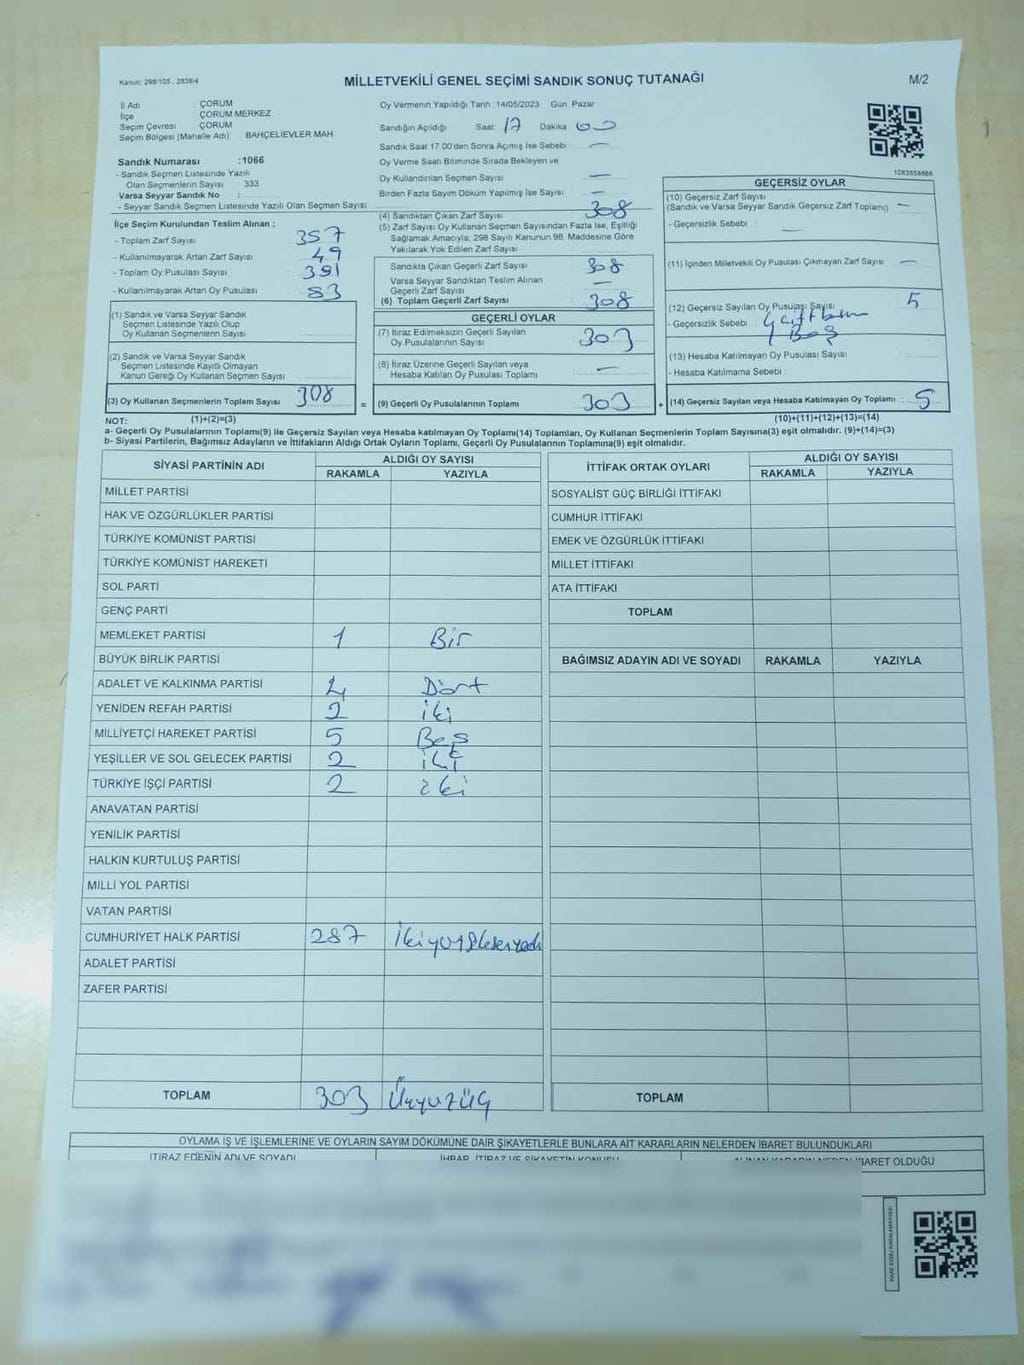 Kanun: 298/105 , 2839/4
MİLLETVEKİLİ GENEL SEÇİMİ SANDIK SONUÇ TUTANAĞI
M/2
İl Adı : ÇORUM
İlçe : ÇORUM MERKEZ
Seçim Çevresi : ÇORUM
Seçim Bölgesi (Mahalle Adı) BAHÇELİEVLER MAH
Sandık Numarası :1066
- Sandık Seçmen Listesinde Yazılı
Olan Seçmenlerin Sayısı 333
Varsa Seyyar Sandık No :
- Seyyar Sandık Seçmen Listesinde Yazılı Olan Seçmen Sayısı
Oy Vermenin Yapıldığı Tarih :14/05/2023 Gün: Pazar
Sandığın Açıldığı Saat: 17 Dakika 00
Sandık Saat 17.00'den Sonra Açılmış İse Sebebi : —
Oy Verme Saati Bitiminde Sırada Bekleyen ve
Oy Kullandırılan Seçmen Sayısı —
Birden Fazla Sayım Döküm Yapılmış İse Sayısı : —
1083558666
İlçe Seçim Kurulundan Teslim Alınan ;
- Toplam Zarf Sayısı 357
- Kullanılmayarak Artan Zarf Sayısı 49
- Toplam Oy Pusulası Sayısı 391
- Kullanılmayarak Artan Oy Pusulası 83
(1) Sandık ve Varsa Seyyar Sandık
Seçmen Listesinde Yazılı Olup
Oy Kullanan Seçmenlerin Sayısı
(2) Sandık ve Varsa Seyyar Sandık
Seçmen Listesinde Kayıtlı Olmayan
Kanun Gereği Oy Kullanan Seçmen Sayısı
(3) Oy Kullanan Seçmenlerin Toplam Sayısı 308
(1)+(2)=(3)
(4) Sandıktan Çıkan Zarf Sayısı 308
(5) Zarf Sayısı Oy Kullanan Seçmen Sayısından Fazla İse, Eşitliği
Sağlamak Amacıyla, 298 Sayılı Kanunun 98. Maddesine Göre
Yakılarak Yok Edilen Zarf Sayısı
Sandıkta Çıkan Geçerli Zarf Sayısı 308
Varsa Seyyar Sandıktan Teslim Alınan
Geçerli Zarf Sayısı —
(6) Toplam Geçerli Zarf Sayısı 308
GEÇERLİ OYLAR
(7) İtiraz Edilmeksizin Geçerli Sayılan
Oy Pusulalarının Sayısı 303
(8) İtiraz Üzerine Geçerli Sayılan veya
Hesaba Katılan Oy Pusulası Toplamı —
= (9) Geçerli Oy Pusulalarının Toplamı 303 +
GEÇERSİZ OYLAR
(10) Geçersiz Zarf Sayısı
(Sandık ve Varsa Seyyar Sandık Geçersiz Zarf Toplamı) —
- Geçersizlik Sebebi : —
(11) İçinden Milletvekili Oy Pusulası Çıkmayan Zarf Sayısı —
(12) Geçersiz Sayılan Oy Pusulası Sayısı 5
- Geçersizlik Sebebi :
1 Boş
(13) Hesaba Katılmayan Oy Pusulası Sayısı
- Hesaba Katılmama Sebebi :
(14) Geçersiz Sayılan veya Hesaba Katılmayan Oy Toplamı 5
(10)+(11)+(12)+(13)=(14)
NOT:
a- Geçerli Oy Pusulalarının Toplamı(9) ile Geçersiz Sayılan veya Hesaba katılmayan Oy Toplamı(14) Toplamları, Oy Kullanan Seçmenlerin Toplam Sayısına(3) eşit olmalıdır. (9)+(14)=(3)
b- Siyasi Partilerin, Bağımsız Adayların ve İttifakların Aldığı Ortak Oyların Toplamı, Geçerli Oy Pusulalarının Toplamına(9) eşit olmalıdır.
SİYASİ PARTİNİN ADI ALDIĞI OY SAYISI
RAKAMLA YAZIYLA
MİLLET PARTİSİ
HAK VE ÖZGÜRLÜKLER PARTİSİ
TÜRKİYE KOMÜNİST PARTİSİ
TÜRKİYE KOMÜNİST HAREKETİ
SOL PARTİ
GENÇ PARTİ
MEMLEKET PARTİSİ 1 Bir
BÜYÜK BİRLİK PARTİSİ
ADALET VE KALKINMA PARTİSİ 4 Dört
YENİDEN REFAH PARTİSİ 2 iki
MİLLİYETÇİ HAREKET PARTİSİ 5 Beş
YEŞİLLER VE SOL GELECEK PARTİSİ 2 iki
TÜRKİYE İŞÇİ PARTİSİ 2 iki
ANAVATAN PARTİSİ
YENİLİK PARTİSİ
HALKIN KURTULUŞ PARTİSİ
MİLLİ YOL PARTİSİ
VATAN PARTİSİ
CUMHURİYET HALK PARTİSİ 287 İkiyüzseksenyedi
ADALET PARTİSİ
ZAFER PARTİSİ
TOPLAM 303 Üçyüzüç
İTTİFAK ORTAK OYLARI ALDIĞI OY SAYISI
RAKAMLA YAZIYLA
SOSYALİST GÜÇ BİRLİĞİ İTTİFAKI
CUMHUR İTTİFAKI
EMEK VE ÖZGÜRLÜK İTTİFAKI
MİLLET İTTİFAKI
ATA İTTİFAKI
TOPLAM
BAĞIMSIZ ADAYIN ADI VE SOYADI RAKAMLA YAZIYLA
TOPLAM
OYLAMA İŞ VE İŞLEMLERİNE VE OYLARIN SAYIM DÖKÜMÜNE DAİR ŞİKAYETLERLE BUNLARA AİT KARARLARIN NELERDEN İBARET BULUNDUKLARI
İTİRAZ EDENİN ADI VE SOYADI İHBAR, İTİRAZ VE ŞİKAYETİN KONUSU ALINAN KARARIN NEDEN İBARET OLDUĞU